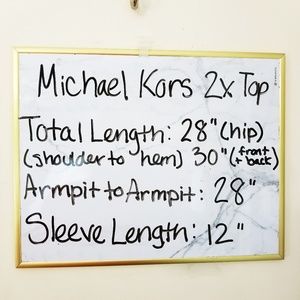 Michael Kors 2x Top
Total Length: 28" (hip)
(shoulder to hem) 30" (front + back)
Armpit to Armpit: 28"
Sleeve Length: 12"